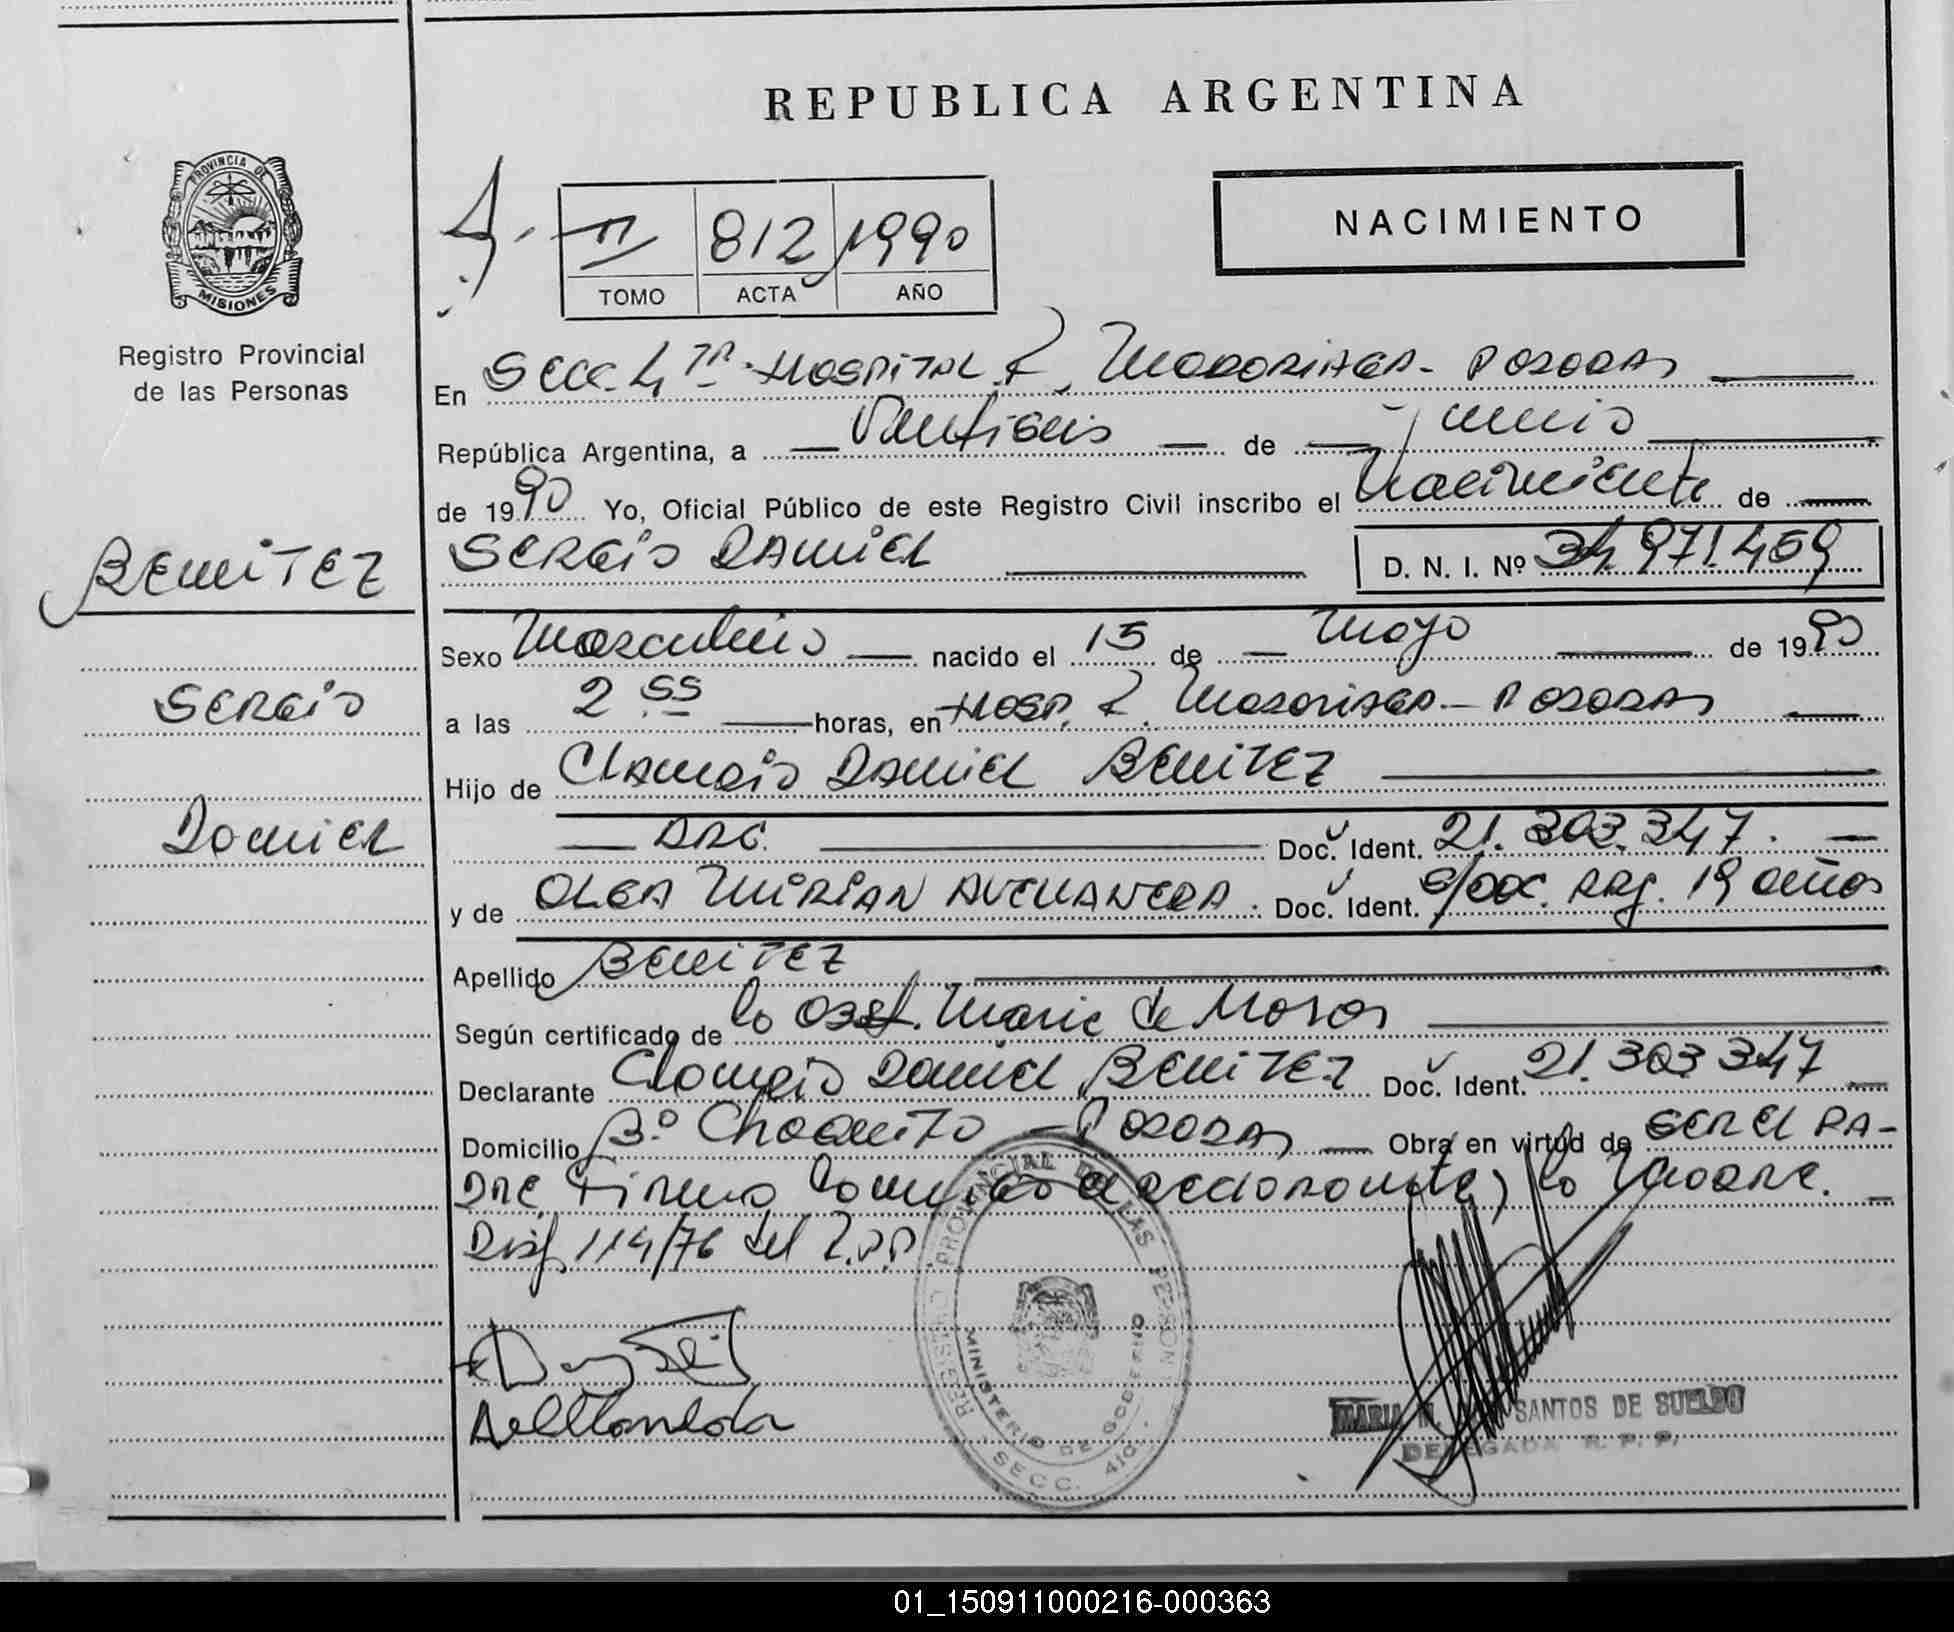 REPUBLICA ARGENTINA
PROVINCIA DE
MISIONES
Registro Provincial
de las Personas
II 812 1990
TOMO ACTA AÑO
NACIMIENTO
En Secc. 4ta. HOSPITAL R. Madariaga - POSADAS
República Argentina, a Veintiseis de Junio
de 1990 Yo, Oficial Público de este Registro Civil inscribo el Nacimiento de
BENITEZ
SERGIO DANIEL D. N. I. Nº 34.971.459
Sexo Masculino nacido el 15 de Mayo de 1990
SERGIO
a las 2.55 horas, en HOSP. R. Madariaga - POSADAS
Hijo de Claudio DANIEL BENITEZ
DANIEL
ARG. Doc. Ident. 21.303.347.
y de OLGA MIRIAN AVELLANEDA. Doc. Ident. s/doc. Arg. 19 años
Apellido BENITEZ
Según certificado de la Obst. Maria de
Declarante Claudio Daniel BENITEZ Doc. Ident. 21.303.347
Domicilio Bº Chaquito - POSADAS Obra en virtud de SER EL PA-
DRE Firma con el declarante, la Madre.
Disp. 114/76 del R.P.P
Avellaneda
REGISTRO PROVINCIAL DE LAS PERSON
MINISTERIO DE GOBIERNO
SECC. 4
MARIA M. SANTOS DE SUELDO
DELEGADA R. P. P.
01_150911000216-000363